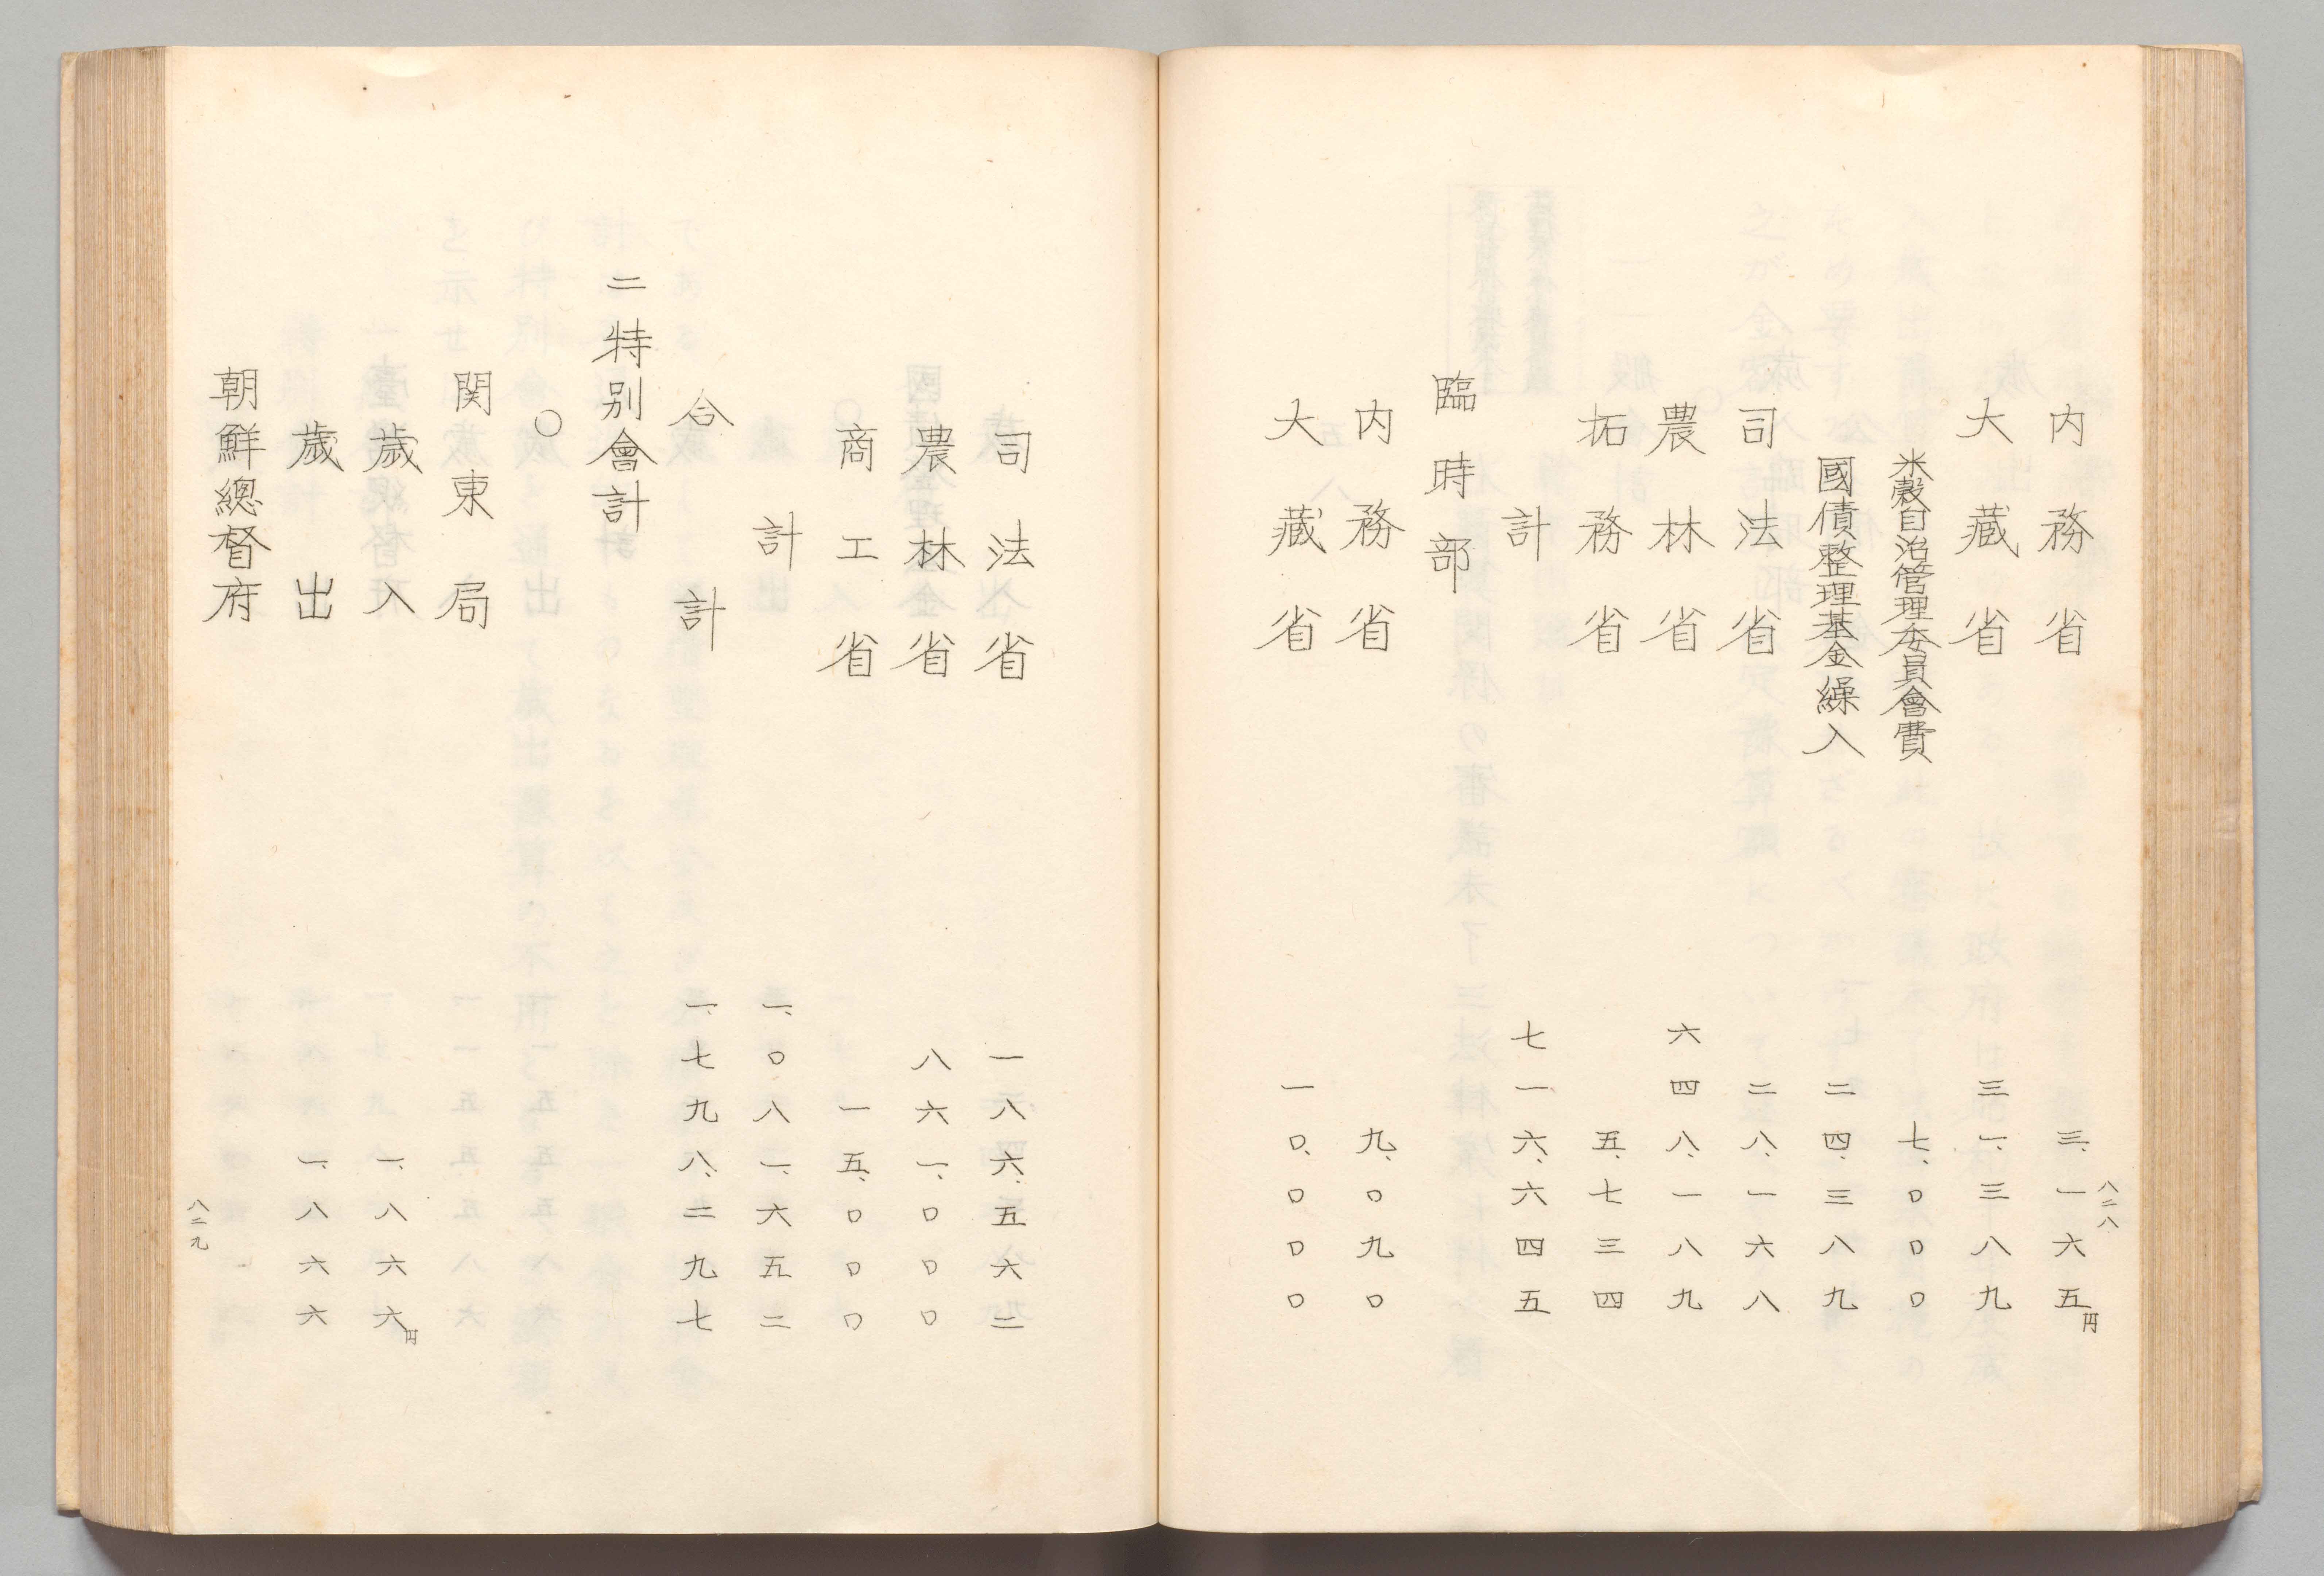 八二八
内務省 三、一六五円
大藏省 三一、三八九
米穀自治管理委員會費 七、〇〇〇
國債整理基金繰入 二四、三八九
司法省 二八、一六八
農林省 六四八、一八九
拓務省 五、七三四
計 七一六、六四五
臨時部
内務省 九、〇九〇
大藏省 一〇、〇〇〇
司法省 一八六、五六二
農林省 八六一、〇〇〇
商工省 一五、〇〇〇
計 一、〇八一、六五二
合計 一、七九八、二九七
二特別會計
〇
関東局
歳入 一、八六六円
歳出 一、八六六
朝鮮總督府
八二九